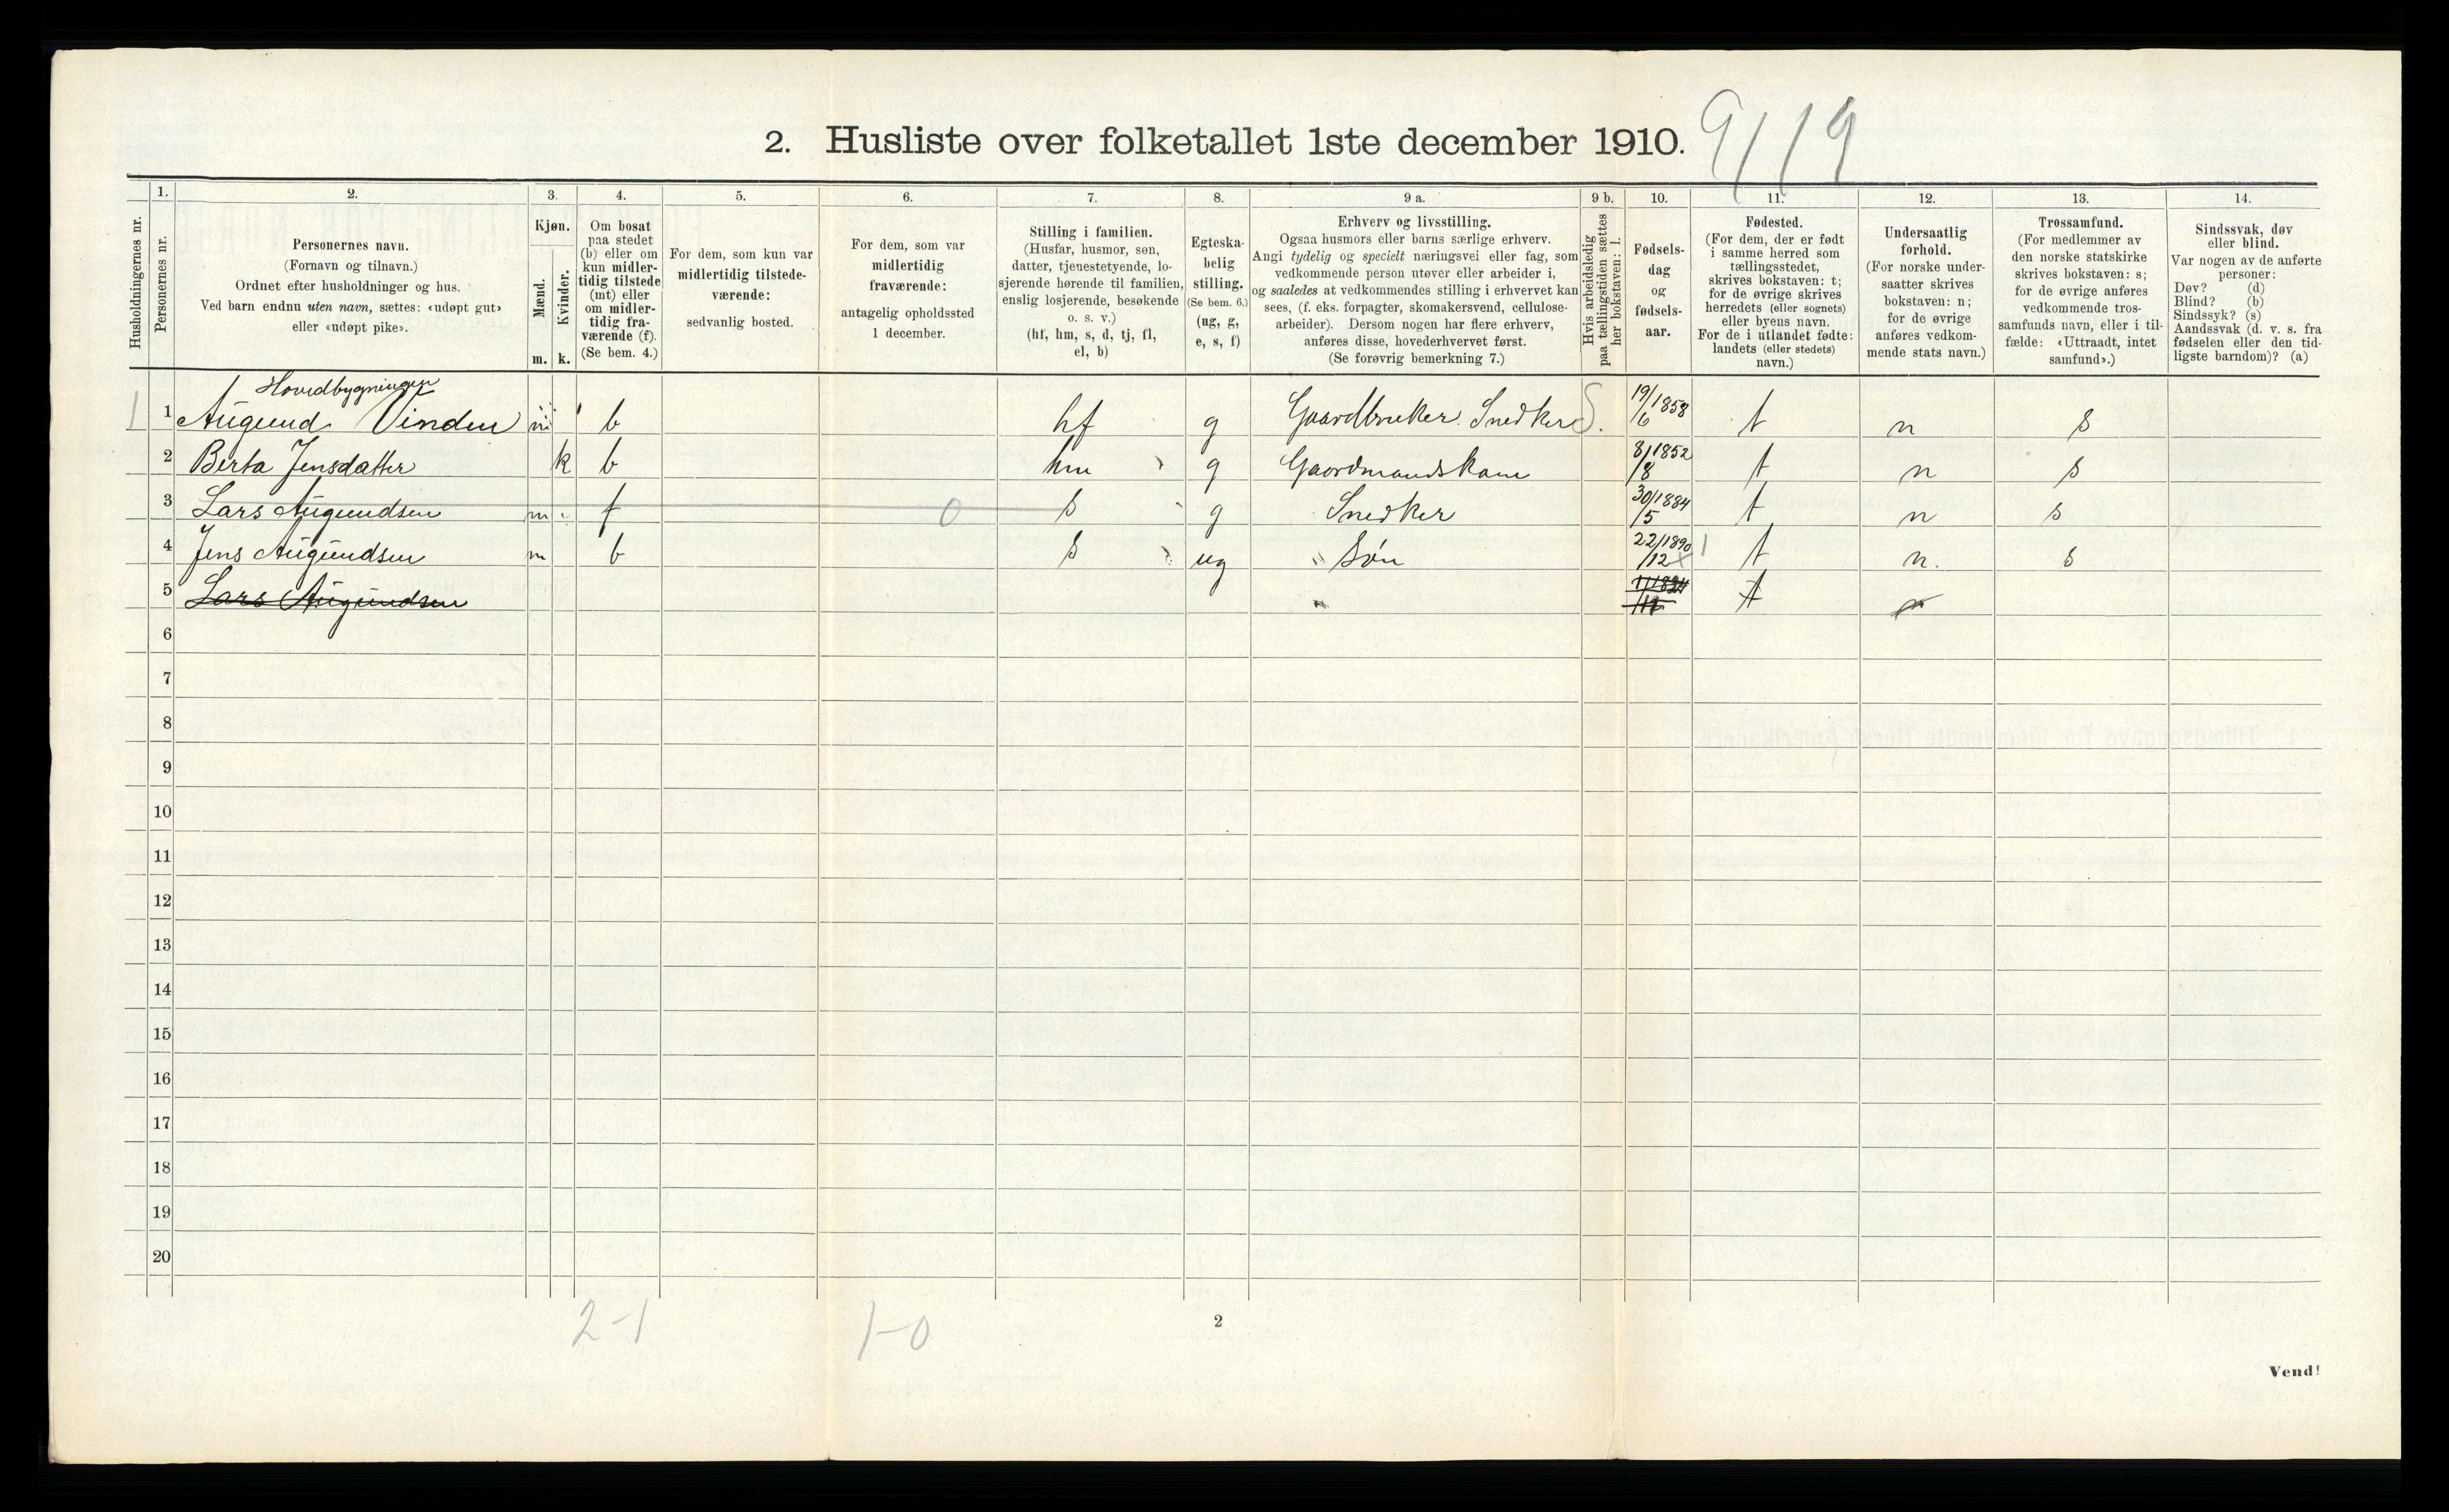 2. Husliste over folketallet 1ste december 1910. 9/19
Husholdningernes nr.
1.
Personernes nr.
2.
Personernes navn.
(Fornavn og tilnavn.)
Ordnet efter husholdninger og hus.
Ved barn endnu uten navn, sættes: «udøpt gut»
eller «udøpt pike».
3.
Kjøn.
Mænd.
Kvinder.
m. k.
4.
Om bosat
paa stedet
(b) eller om
kun midler-
tidig tilstede
(mt) eller
om midler-
tidig fra-
værende (f).
(Se bem. 4.)
5.
For dem, som kun var
midlertidig tilstede-
værende:
sedvanlig bosted.
6.
For dem, som var
midlertidig
fraværende:
antagelig opholdssted
1 december.
7.
Stilling i familien.
(Husfar, husmor, søn,
datter, tjenestetyende, lo-
sjerende hørende til familien,
enslig losjerende, besøkende
o. s. v.)
(hf, hm, s, d, tj, fl,
el, b)
8.
Egteska-
belig
stilling.
(Se bem. 6.)
(ug, g,
e, s, f)
9 a.
Erhverv og livsstilling.
Ogsaa husmors eller barns særlige erhverv.
Angi tydelig og specielt næringsvei eller fag, som
vedkommende person utøver eller arbeider i,
og saaledes at vedkommendes stilling i erhvervet kan
sees, (f. eks. forpagter, skomakersvend, cellulose-
arbeider). Dersom nogen har flere erhverv,
anføres disse, hovederhvervet først.
(Se forøvrig bemerkning 7.)
9 b.
Hvis arbeidsledig
paa tællingstiden sættes
her bokstaven: l.
10.
Fødsels-
dag
og
fødsels-
aar.
11.
Fødested.
(For dem, der er født
i samme herred som
tællingsstedet,
skrives bokstaven: t;
for de øvrige skrives
herredets (eller sognets)
eller byens navn.
For de i utlandet fødte:
landets (eller stedets)
navn.)
12.
Undersaatlig
forhold.
(For norske under-
saatter skrives
bokstaven: n;
for de øvrige
anføres vedkom-
mende stats navn.)
13.
Trossamfund.
(For medlemmer av
den norske statskirke
skrives bokstaven: s;
for de øvrige anføres
vedkommende tros-
samfunds navn, eller i til-
fælde: «Uttraadt, intet
samfund».)
14.
Sindssvak, døv
eller blind.
Var nogen av de anførte
personer:
Døv? (d)
Blind? (b)
Sindssyk? (s)
Aandssvak (d. v. s. fra
fødselen eller den tid-
ligste barndom)? (a)
Hovedbygningen
1 1 Augund Vinden m b hf g Gaardbruker. Snedker S. 19/6 1858 t n s
2 Berta Jensdatter k b hm g Gaardmandskone 8/8 1852 t n s
3 Lars Augundsen m f 0 s g Snedker 30/5 1884 t n s
4 Jens Augundsen m b s ug Søn 22/12 1890 t n. s
5 Lars Augundsen t n
6
7
8
9
10
11
12
13
14
15
16
17
18
19
20
2-1 1-0
2
Vend!